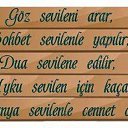 Göz sevileni arar,
Sohbet sevilenle yapılır,
Dua sevilene edilir,
Uyku sevilen için kaça
nya sevilenle cennet o